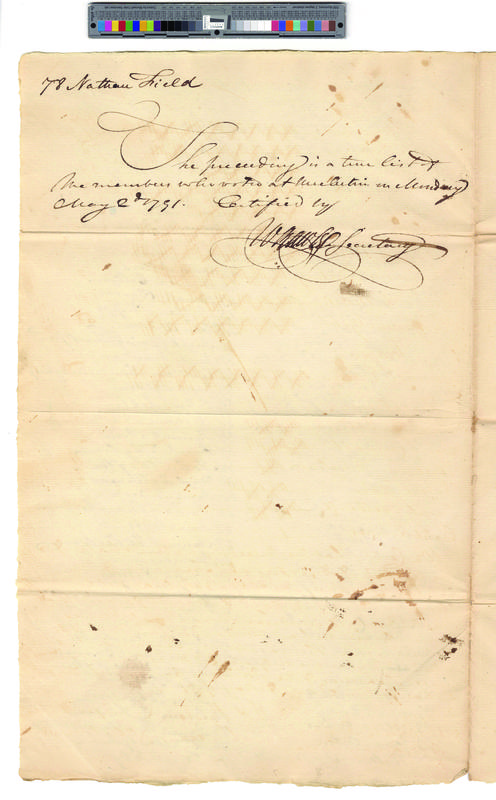 78 Nathan Field
The preceeding is a true list of
the members who voted at the Election on Monday
May 2d 1791. Certified by
Secretary